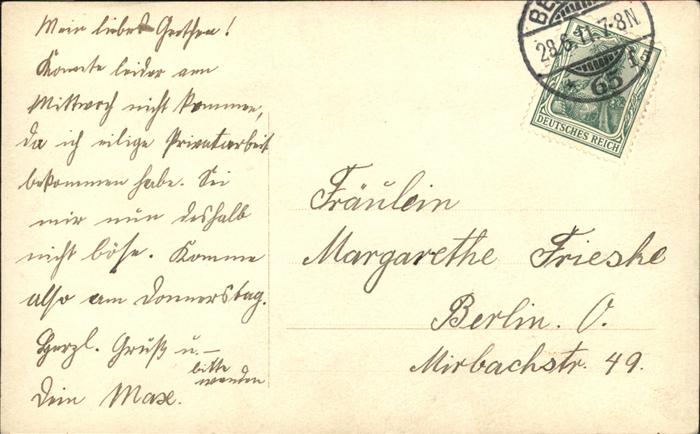 Mein liebes Gretchen!
Konnte leider am
Mittwoch nicht kommen,
da ich eilige Privatarbeit
bekommen habe. Sei
mir nun deshalb
nicht böse. Komme
also am Donnerstag.
Herzl. Gruß u. –
bitte
wenden
Dein Max.
BE
28.6.11. 7-8N
* 65
DEUTSCHES REICH
Fräulein
Margarethe Frieske
Berlin. O.
Mirbachstr. 49.